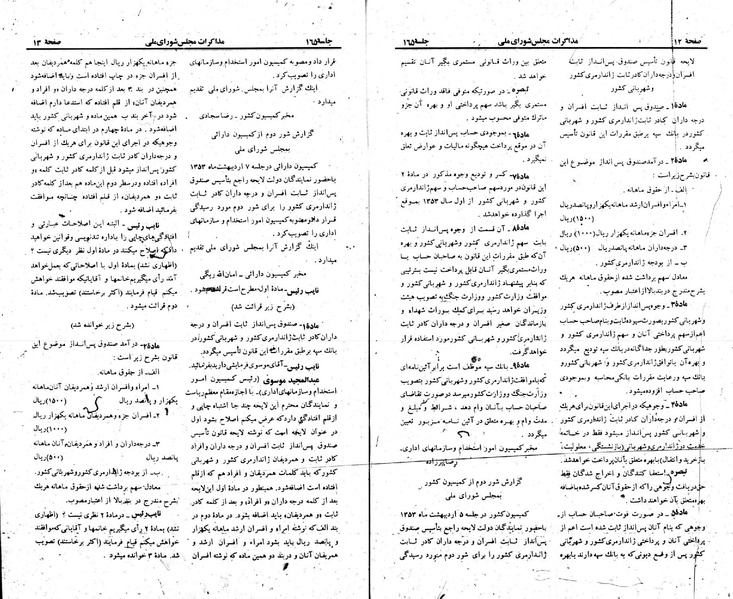 صفحهٔ ۱۲
مذاکرات مجلس شورای ملی
جلسه ۱۶۵
لایحه قانون تأسیس صندوق پس‌انداز ثابت
افسران و درجه‌داران کادر ثابت ژاندارمری کشور
و شهربانی کشور
ماده۱ـ صندوق پس انداز ثابت افسران و
درجه داران کادر ثابت ژاندارمری کشور و شهربانی
کشور در بانک سپه بر طبق مقررات این قانون تأسیس
میگردد.
ماده۲ـ درآمد صندوق پس‌انداز موضوع این
قانون بشرح زیر است:
الف ـ از حقوق ماهانه.
۱ـ امراء و افسران ارشد ماهانه یکهزار و پانصد ریال
(۱۵۰۰) ریال
۲ـ افسران جزء ماهانه یکهزار ریال (۱۰۰۰) ریال
۳ـ درجه‌داران ماهانه پانصد ریال (۵۰۰) ریال
ب ـ از بودجه ژاندارمری کشور
معادل سهم برداشت شده از حقوق ماهانه هر یک
بشرح بند الف از اعتبار مصوب.
ماده۳ـ وجوه پس انداز از طرف ژاندارمری کشور
و شهربانی کشور بصورت سپرده ثابت و بنام صاحب حساب
اعم از سهم پرداختی آنان و سهم ژاندارمری کشور و
شهربانی کشور بطور جداگانه در بانک سپه تودیع میگردد
و بهره آن با توافق ژاندارمری کشور و شهربانی کشور و
بانک سپه و رعایت مقررات بانکی محاسبه و بموجودی
صاحب حساب افزوده میشود.
ماده۴ـ وجوهیکه در اجرای این قانون برای هر یک
از افسران و درجه‌داران کادر ثابت ژاندارمری کشور
و شهربانی کشور پس‌انداز میشود فقط در خاتمه
خدمت در ژاندارمری و شهربانی (بازنشستگی ـ معلولیت ـ
بازخرید و انتقال) با بهره متعلق به آنان پرداخت خواهد شد.
تبصره ـ استعفا کنندگان و اخراج شدگان فقط
حق دریافت وجوهی را که از حقوق آنان کسر شده باضافه
بهره متعلق بآن خواهند داشت.
ماده۵ـ در صورت فوت صاحبان حساب از
وجوهی که بنام آنان پس انداز ثابت شده است اعم از
سهم پرداختی آنان و ژاندارمری کشور و شهربانی
کشور پس از وضع دیونی که به بانک سپه دارند با بهره
متعلق بین وراث قانونی مستمری بگیر آنان تقسیم
خواهد شد.
تبصره ـ در صورتیکه متوفی فاقد وراث قانونی
مستمری بگیر باشد سهم پرداختی او و بهره آن جزو
ماترک متوفی محسوب میشود.
ماده۶ـ بموجودی حساب پس‌انداز ثابت و بهره
آن در موقع پرداخت هیچگونه مالیات و عوارض تعلق
نمیگیرد.
ماده۷ـ کسر و تودیع وجوه مذکور در ماده ۲
این قانون در مورد سهم صاحب حساب و سهم ژاندارمری
کشور و شهربانی کشور از اول سال ۱۳۵۳ بموقع
اجرا گذارده خواهد شد.
ماده۸ـ آن قسمت از وجوه پس‌انداز ثابت
بابت سهم ژاندارمری کشور و شهربانی کشور و بهره
آن که طبق مقررات این قانون به صاحبان حساب یا
وراث مستمری بگیر آنان قابل پرداخت نیست بترتیبی
که بنابر پیشنهاد ژاندارمری کشور و شهربانی کشور و
موافقت وزارت کشور و وزارت جنگ به تصویب هیئت
وزیران خواهد رسید برای کمک بورثه شهداء و
بازماندگان صغیر افسران و درجه‌داران کادر ثابت
ژاندارمری کشور و شهربانی کشور مورد استفاده قرار
خواهد گرفت.
ماده۹ـ بانک سپه موظف است برابر آئین‌نامه‌ای
که با موافقت ژاندارمری کشور و شهربانی کشور بتصویب
وزارت جنگ و وزارت کشور میرسد در صورت تقاضای
صاحبان حساب بآنان وام دهد. شرایط و مبلغ و
مدت وام و بهره متعلق در آئین نامه مزبور تعیین
میگردد.
مخبر کمیسیون امور استخدام و سازمانهای اداری ـ
گزارش شور دوم از کمیسیون کشور
به مجلس شورای ملی
کمیسیون کشور در جلسه ۵ اردیبهشت ماه ۱۳۵۳
باحضور نمایندگان دولت لایحه راجع به تأسیس صندوق
پس‌انداز ثابت افسران و درجه داران کادر ثابت
ژاندارمری کشور را برای شور دوم مورد رسیدگی
جلسه ۱۶۵
مذاکرات مجلس شورای ملی
صفحهٔ ۱۳
قرار داد و مصوبه کمیسیون امور استخدام و سازمانهای
اداری را تصویب کرد.
اینک گزارش آنرا بمجلس شورای ملی تقدیم
میدارد.
مخبر کمیسیون کشور ـ رضا سجادی
گزارش شور دوم از کمیسیون دارائی
به مجلس شورای ملی
کمیسیون دارائی در جلسه ۷ اردیبهشت ماه ۱۳۵۳
باحضور نمایندگان دولت لایحه راجع به تأسیس صندوق
پس‌انداز ثابت افسران و درجه داران کادر ثابت
ژاندارمری کشور را برای شور دوم مورد رسیدگی
قرار داد و مصوبه کمیسیون امور استخدام و سازمانهای
اداری را تصویب کرد.
اینک گزارش آنرا به مجلس شورای ملی تقدیم
میدارد.
مخبر کمیسیون دارائی ـ امان‌الله ریگی
نایب رئیس ـ ماده اول مطرح است قرائت میشود.
(بشرح زیر قرائت شد)
ماده۱ـ صندوق پس‌انداز ثابت افسران و درجه
داران کادر ثابت ژاندارمری کشور و شهربانی کشور در
بانک سپه بر طبق مقررات این قانون تأسیس میگردد.
نایب رئیس ـ آقای موسوی فرمایشی دارید بفرمائید.
عبدالمجید موسوی (رئیس کمیسیون امور
استخدام و سازمانهای اداری) ـ با اجازه مقام معظم ریاست
و نمایندگان محترم این لایحه چند جا اشتباه چاپی و
از قلم افتادگی دارد که عرض میکنم اصلاح بشود اول
در عنوان لایحه است که نوشته لایحه قانون تأسیس
صندوق پس‌انداز ثابت افسران و درجه داران و افراد
کادر ثابت و همردیفان ژاندارمری کشور و شهربانی
کشور که باید کلمات همردیفان و افراد هم که از قلم
افتاده است اضافه شود. همینطور در ماده اول این لایحه
بعد از کلمه درجه داران و افراد و بعد از کلمه کادر
ثابت و همردیفان، باید اضافه بشود. در ماده دوم در
بند الف که نوشته امراء و افسران ارشد ماهانه یکهزار
و پانصد ریال باید بشود امراء و افسران ارشد و
همردیفان آنان و در بند دو همین ماده که نوشته افسران
جزء ماهانه یکهزار ریال اینجا هم کلمه همردیفان بعد
از افسران جزء در چاپ افتاده است و باید اضافه شود
همچنین در بند ۳ بعد از کلمه درجه داران و افراد و
همردیفان آنان، از قلم افتاده که استدعا دارم اضافه
شود در آخر بند ب همین ماده و شهربانی کشور باید
اضافه شود. در ماده چهارم در ابتدای ماده که نوشته
وجوهیکه در اجرای این قانون برای هر یک از افسران
و درجه داران کادر ثابت ژاندارمری کشور و شهربانی
کشور پس‌انداز میشود قبل از کلمه کادر ثابت کلمه و
افراد، افتاده و در سطر دوم این ماده هم بعد از کلمه کادر
ثابت دو همردیفان، از قلم افتاده چنانچه موافقت
بفرمائید اضافه شود.
نایب رئیس ـ البته این اصلاحات عبارتی و
افتادگی‌های چاپی را باداره تندنویسی و قوانین خواهید
داد که اصلاح میکنند در ماده اول نظر دیگری نیست؟
(اظهاری نشد) بماده اول با اصلاحاتی که بعمل خواهد
آمد رأی میگیریم خانمها و آقایانیکه موافقند خواهش
میکنم قیام فرمایند (اکثر برخاستند) تصویب شد. مادهٔ
دوم قرائت میشود.
(بشرح زیر خوانده شد)
ماده۲ـ درآمد صندوق پس‌انداز موضوع این
قانون بشرح زیر است:
الف ـ از حقوق ماهانه
۱ـ امراء و افسران ارشد و همردیفان آنان ماهانه
یکهزار و پانصد ریال (۱۵۰۰) ریال
۲ـ افسران جزء و همردیفان ماهانه یکهزار ریال
(۱۰۰۰) ریال
۳ـ درجه داران و افراد و همردیفان آنان ماهانه
پانصد ریال (۵۰۰) ریال
ب ـ از بودجه ژاندارمری کشور و شهربانی کشور.
معادل سهم برداشت شده از حقوق ماهانه هر یک
بشرح مندرج در بند بالا از اعتبار مصوب.
نایب رئیس ـ در مادهٔ ۲ نظری نیست؟ (اظهاری
نشد) بمادهٔ ۲ رأی میگیریم خانمها و آقایانی که موافقند
خواهش میکنم قیام فرمایند (اکثر برخاستند) تصویب
شد. مادهٔ ۳ خوانده میشود.